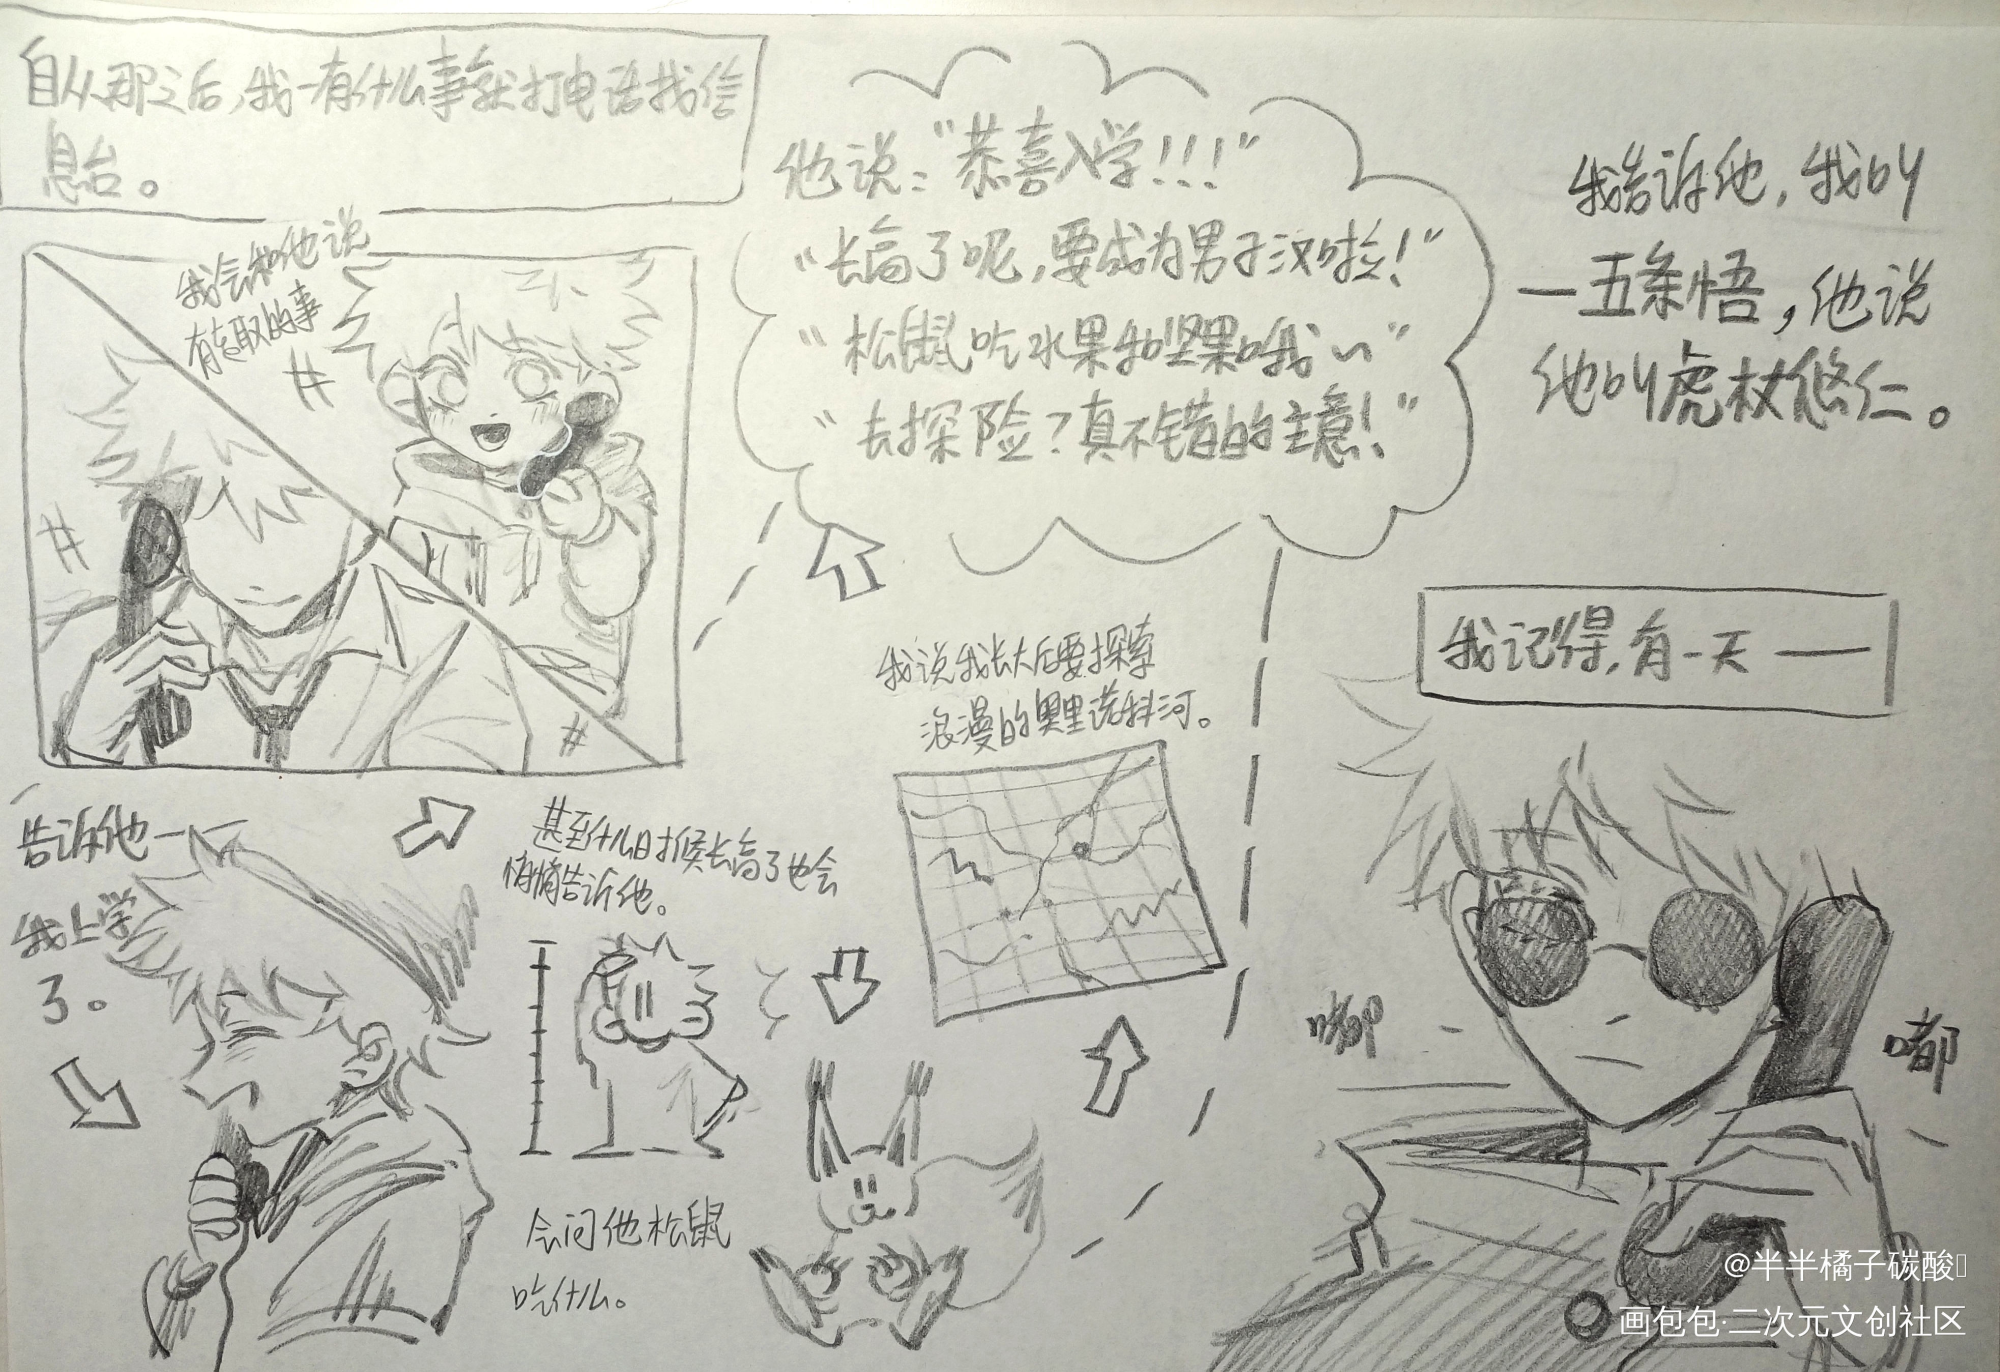 自从那之后,我一有什么事就打电话找信
息台。
我会和他说
有趣的事
告诉他一
我上学
了。
甚至什么时候长高了也会
悄悄告诉他。
会问他松鼠
吃什么。
我说我长大后要探索
浪漫的奥里诺科河。
他说:"恭喜入学!!!"
"长高了呢,要成为男子汉啦!"
"松鼠吃水果和坚果哦~"
"去探险?真不错的主意!"
我告诉他,我叫
一五条悟,他说
他叫虎杖悠仁。
我记得,有一天——
嘟
嘟
@半半橘子碳酸
画包包·二次元文创社区